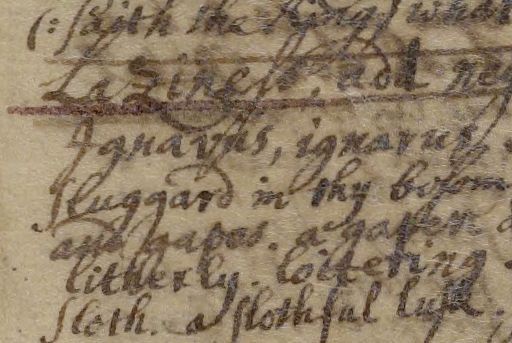 (: saith the King) what
Laziness, and neg
Ignavus, ignarus,
sluggard in thy bosom
and gapes. a gaper
litherly. loitering
sloth. a slothful lusk.